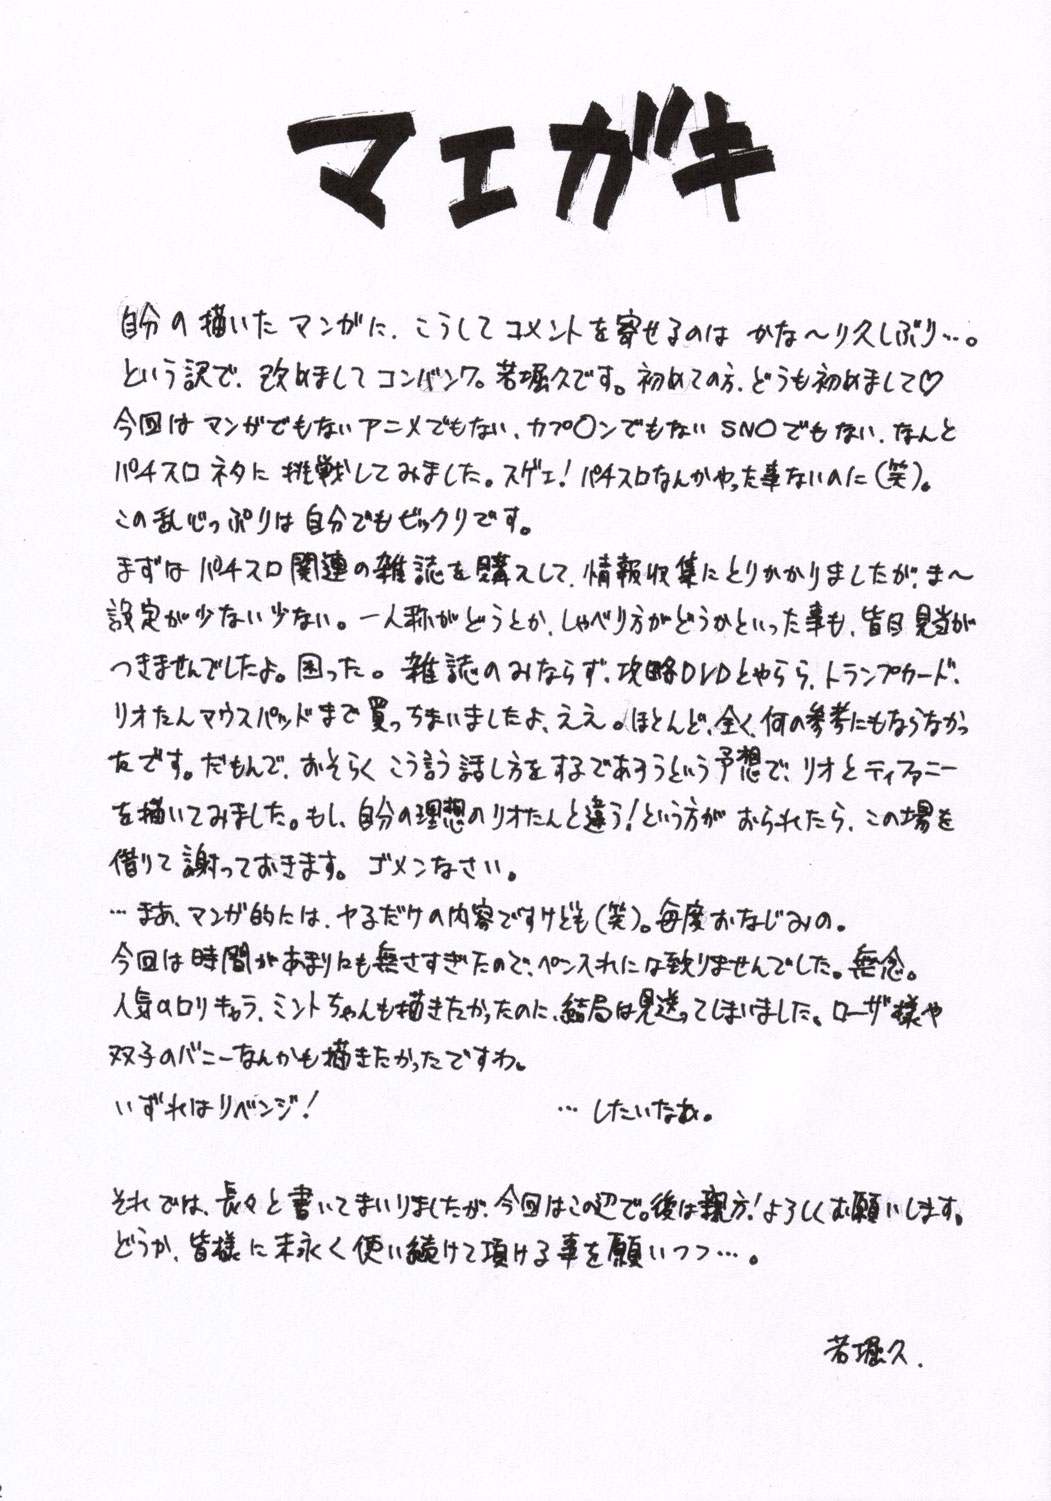 マエガキ
自分の描いたマンガに、こうしてコメントを寄せるのは かな〜り久しぶり…。
という訳で、改めましてコンバンワ。若堀久です。初めての方、どうも初めまして♡
今回はマンガでもないアニメでもない、カプ〇ンでもないSN〇でもない、なんと
パチスロネタに挑戦してみました。スゲェ!パチスロなんかやった事ないのに(笑)。
この乱心っぷりは自分でもビックリです。
まずはパチスロ関連の雑誌を購入して、情報収集にとりかかりましたが、ま〜
設定が少ない少ない。一人称がどうとか、しゃべり方がどうかといった事も、皆目見当が
つきませんでしたよ。困った。雑誌のみならず、攻略DVDとやら、トランプカード、
リオたんマウスパッドまで買っちまいましたよ、ええ。ほとんど、全く、何の参考にもならなかっ
たです。だもんで、おそらくこう言う話し方をするであろうという予想で、リオとティファニー
を描いてみました。もし、自分の理想のリオたんと違う!という方がおられたら、この場を
借りて謝っておきます。ゴメンなさい。
…まあ、マンガ的には、ヤるだけの内容ですけども(笑)。毎度おなじみの。
今回は時間があまりにも無さすぎたので、ペン入れには至りませんでした。無念。
人気のロリキャラ、ミントちゃんも描きたかったのに、結局は見送ってしまいました。ローザ様や
双子のバニーなんかも描きたかったですわ。
いずれはリベンジ! …したいなぁ。
それでは、長々と書いてまいりましたが、今回はこの辺で。後は親方!よろしくお願いします。
どうか、皆様に末永く使い続けて頂ける事を願いつつ…。
若堀久.
2